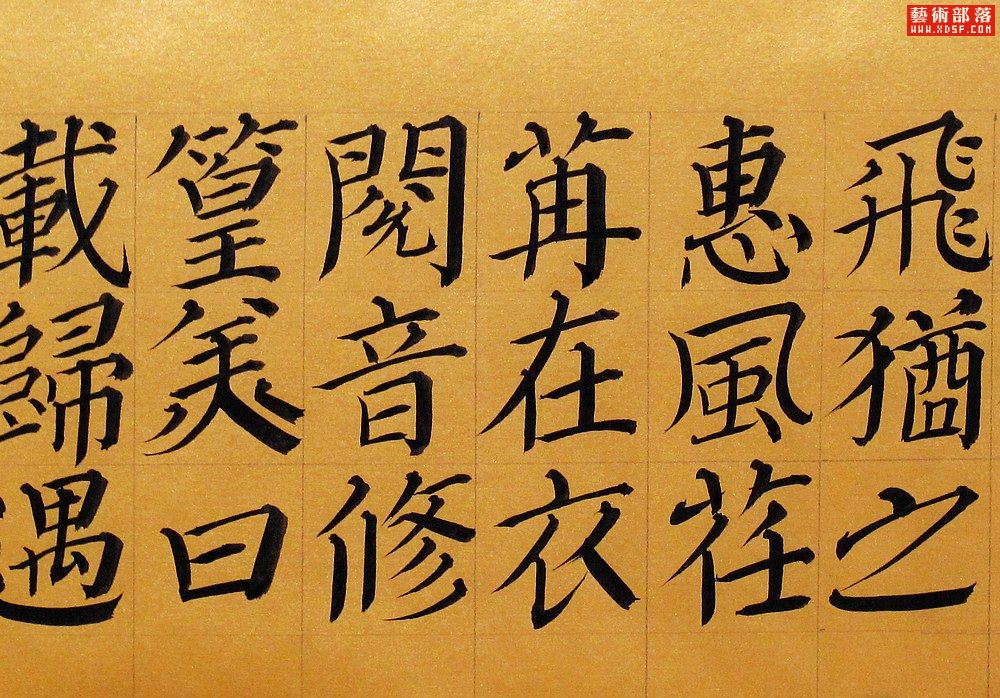 飛猶之
惠風荏
苒在衣
閱音修
篁美曰
載歸遇
藝術部落
WWW.XDSF.COM